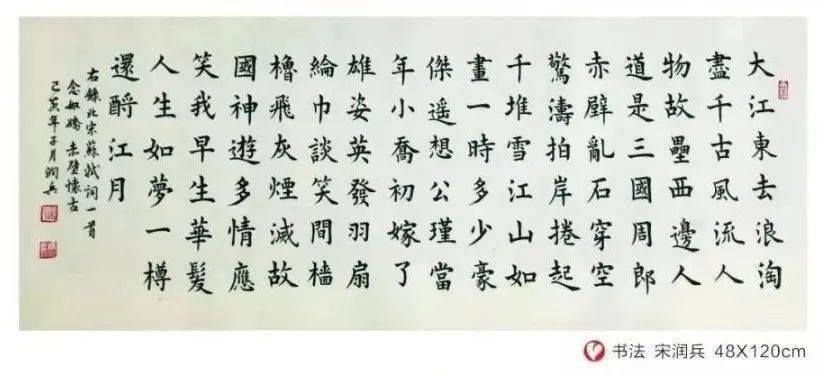 大江東去浪淘
盡千古風流人
物故壘西邊人
道是三國周郎
赤壁亂石穿空
驚濤拍岸捲起
千堆雪江山如
畫一時多少豪
傑遥想公瑾當
年小喬初嫁了
雄姿英發羽扇
綸巾談笑間檣
櫓飛灰煙滅故
國神遊多情應
笑我早生華髮
人生如夢一樽
還酹江月
右錄北宋蘇軾詞一首
念奴嬌赤壁懷古
己亥年子月潤兵
书法 宋润兵 48X120cm